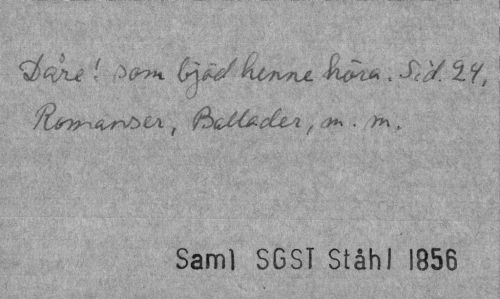 Dåre! som bjöd henne höra. Sid. 24,
Romanser, Ballader, m. m.
Saml SGST Ståhl 1856